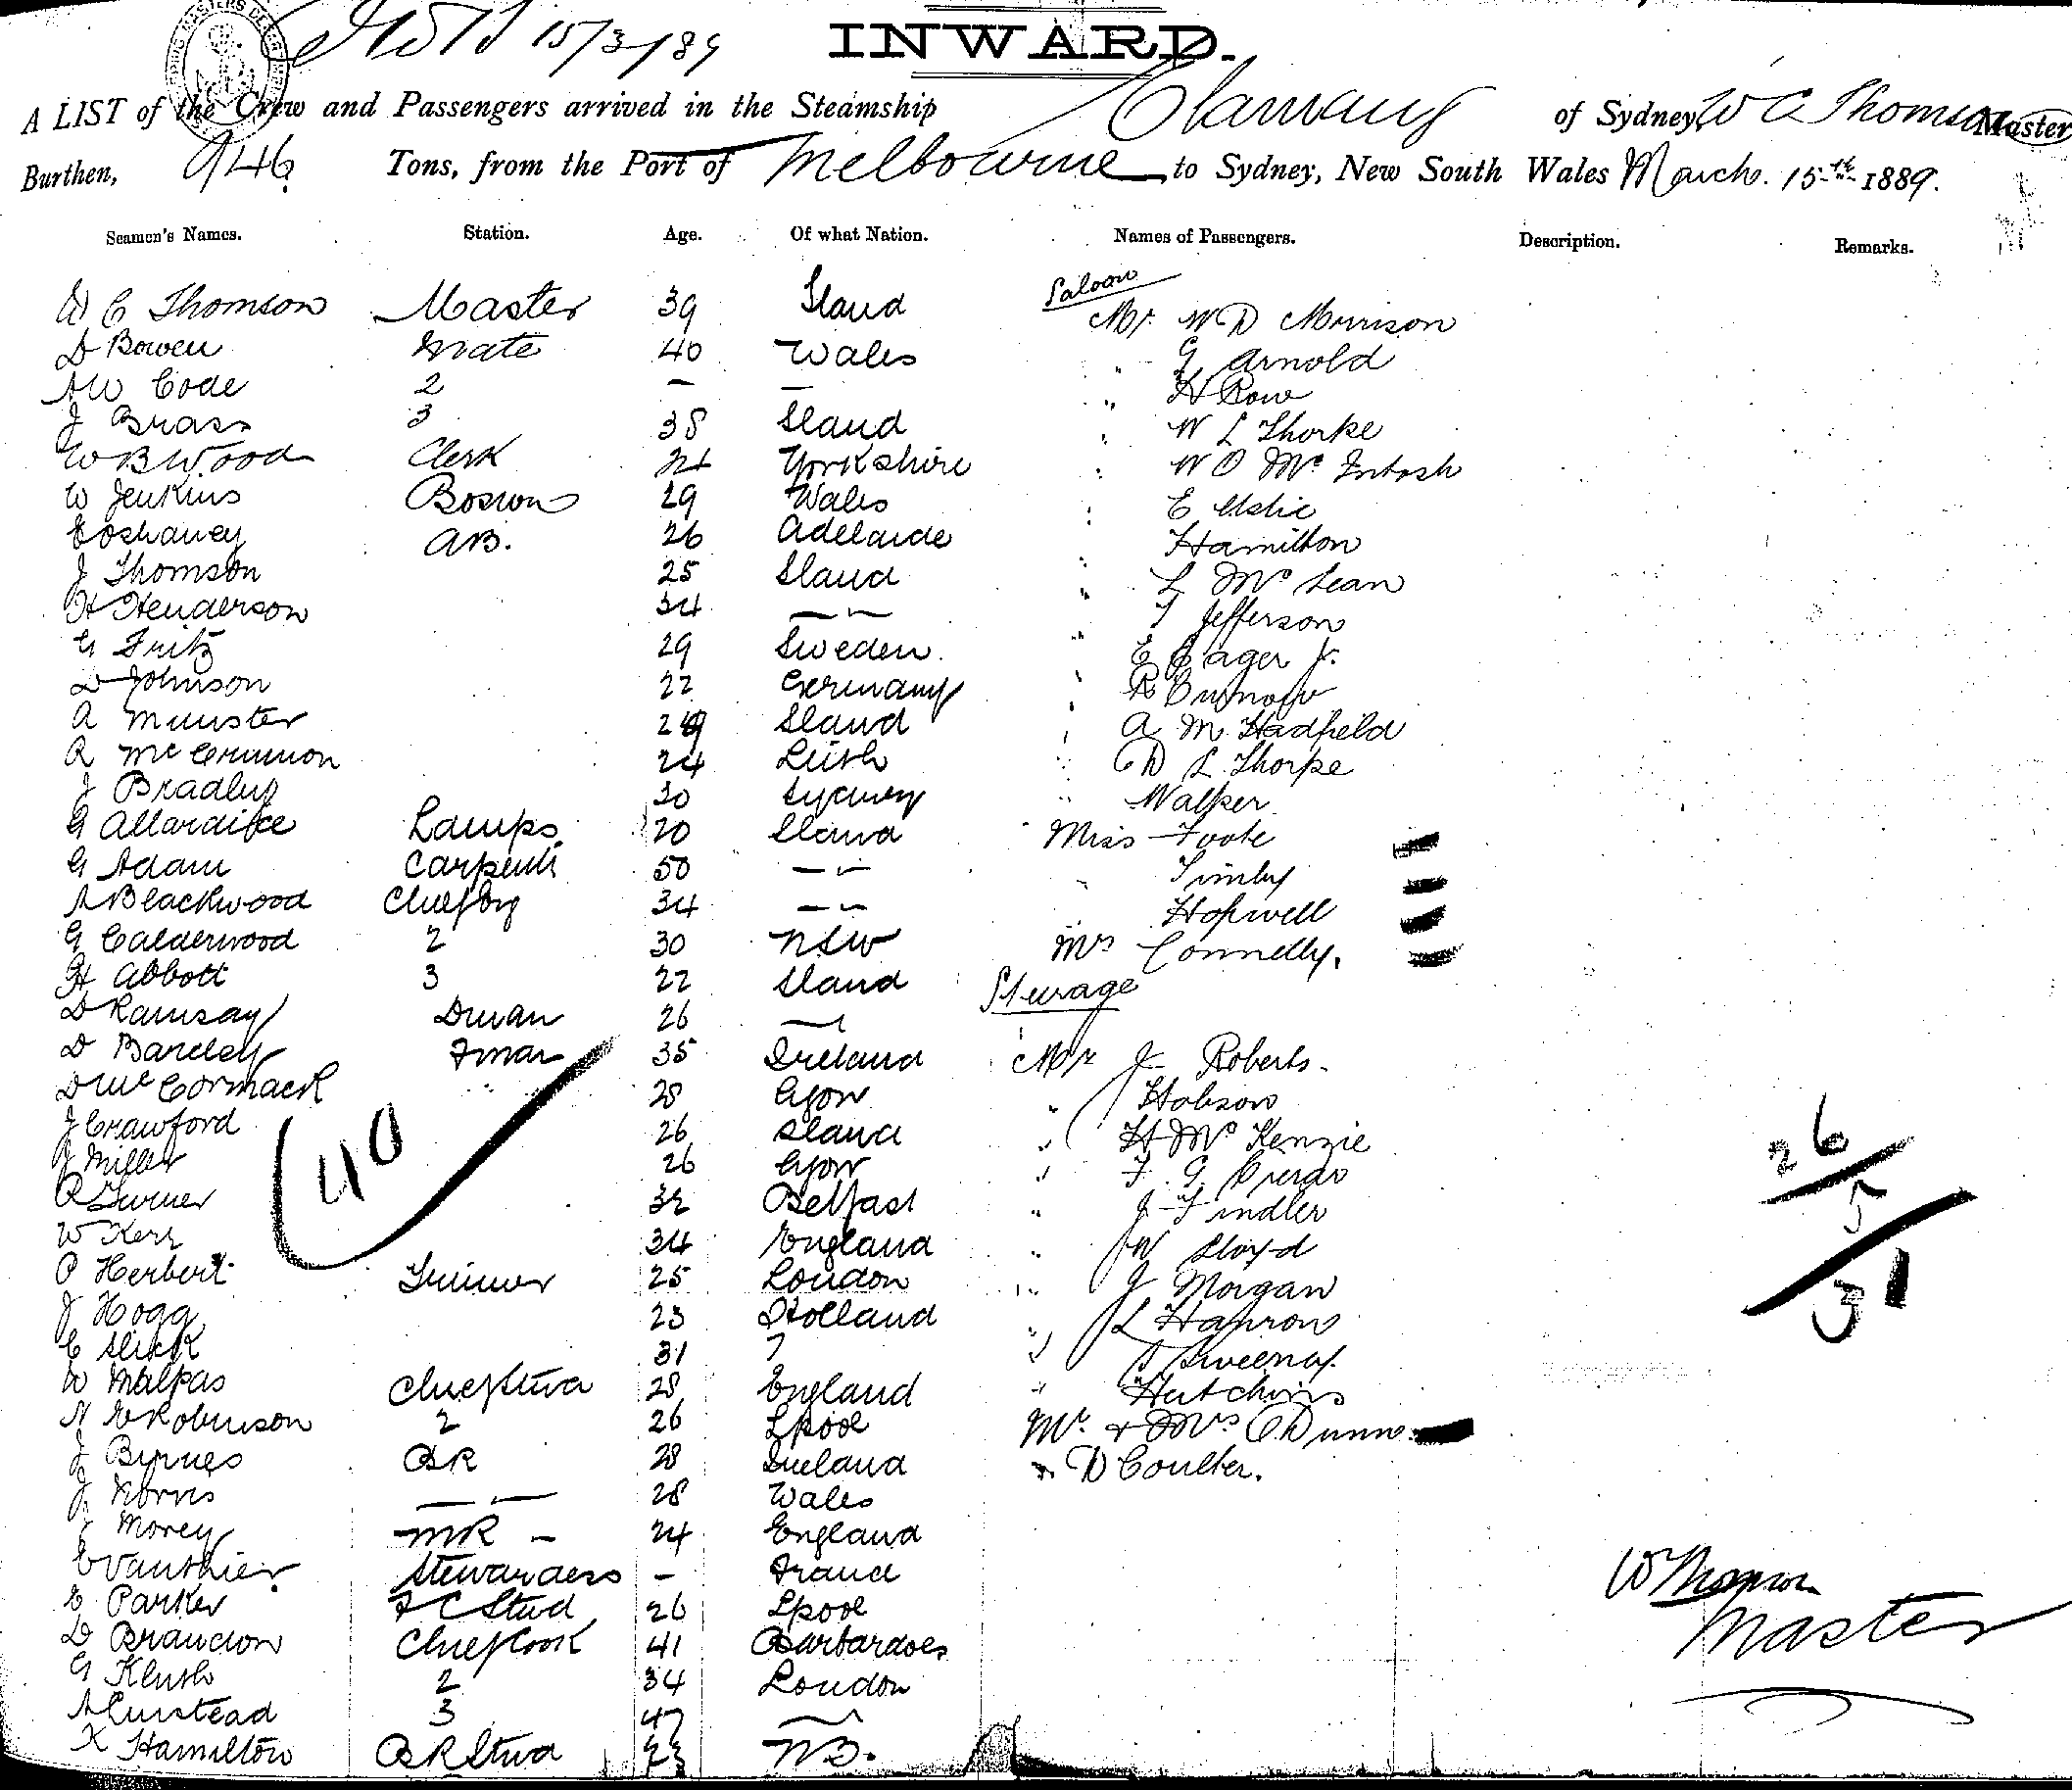 15/3/89
INWARD.
A LIST of the Crew and Passengers arrived in the Steamship of Sydney, W C Thomson Master
Burthen, 946 Tons, from the Port of Melbourne to Sydney, New South Wales March 15th 1889.
Seamen's Names. Station. Age. Of what Nation. Names of Passengers. Description. Remarks.
Saloon
W C Thomson Master 39 Sland Mr. W D Morrison
D Bowen Mate 40 Wales " G Arnold
AW Code 2 — — " H Row
J Brass 3 38 Sland " W L Thorpe
W B Wood Clerk 24 Yorkshire " W O McIntosh
W Jenkins Bosun 29 Wales " E
AB. 26 Adelaide Hamilton
J Thomson 25 Sland " L McLean
H Henderson 34 — — " T Jefferson
G Fritz 29 Sweden. " E Eager Jr.
D Johnson 22 Germany " R
A Munster 29 Sland " A M Hadfield
R McCrimmon 24 Leith " D L Thorpe
J Bradley 30 Sydney " Walker
G Allardice Lamps. 20 Sland Miss Foote
G Adam Carpentr 50 — — "
A Blackwood Chief Eng 34 — — " Hopwell
G Calderwood 2 30 NSW Mrs Connelly.
H Abbott 3 22 Sland Steerage
D Ramsay Dman 26 —
D Barclay Fman 35 Ireland Mr J Roberts.
D McCormack 28 Glgow " Hobson
J Crawford 26 Sland " H McKenzie
J Miller 26 Glgow " F. G.
R Turner 32 Belfast " J Findler
W Kerr 34 England " W Lloyd
P Herbert Trimmer 25 London " J Morgan
J Hogg 23 Holland " L Hanron
C 31 " " Sweeney.
W Malpas Chief Stwd 28 England " Hutchins
N E Robinson 2 26 Lpool Mr. & Mrs Dunn
J Byrnes BR 28 Ireland " D Coulter.
J Norris — — 28 Wales
J Morey MR — 24 England
E Vauthier. Stewardess — France
E Parker F C Stwd 26 Lpool
D Brandon Chief Cook 41 Barbardoes
G 2 34 London
3 47 —
Hamilton BR Stwd 23 N.B.
40
26
5
31
W Thomson
Master